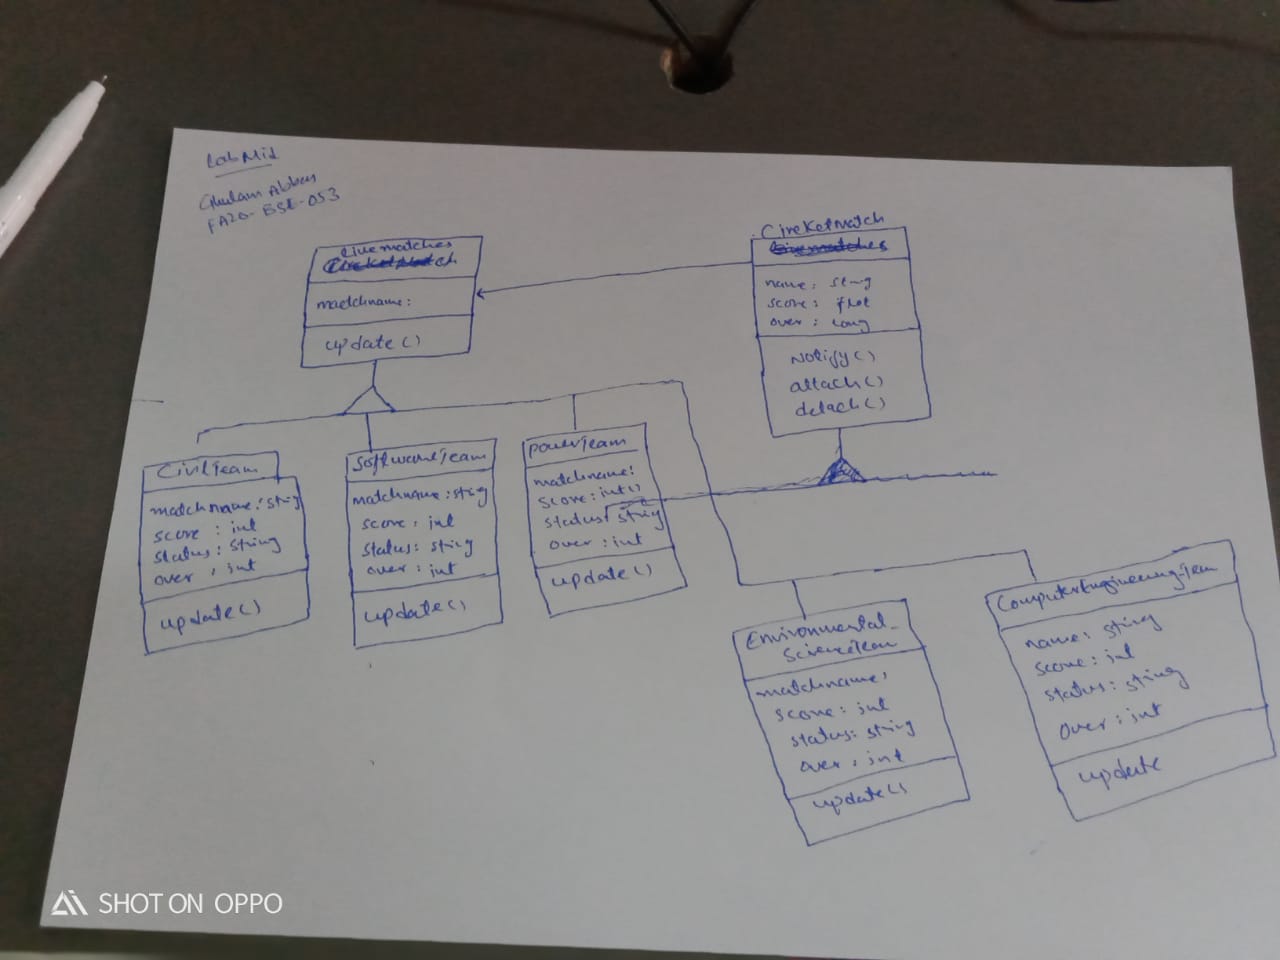 Lab Mid
Ghulam Abbas
FA20-BSE-053
Livematches
matchname:
update()
CireketMatch
name: sting
score: flot
over: long
Notify()
attach()
detach()
CivilTeam
matchname: sting
score : int
status: string
over : int
update()
SoftwareTeam
matchname: sting
score: int
status: sting
over: int
update()
powerTeam
matchname:
score: int
status: string
over: int
update()
Environmental_
ScienceTeam
matchname:
score: int
status: string
over: int
update()
ComputerEngineeringTeam
name: string
score: int
status: string
over: int
update
SHOT ON OPPO